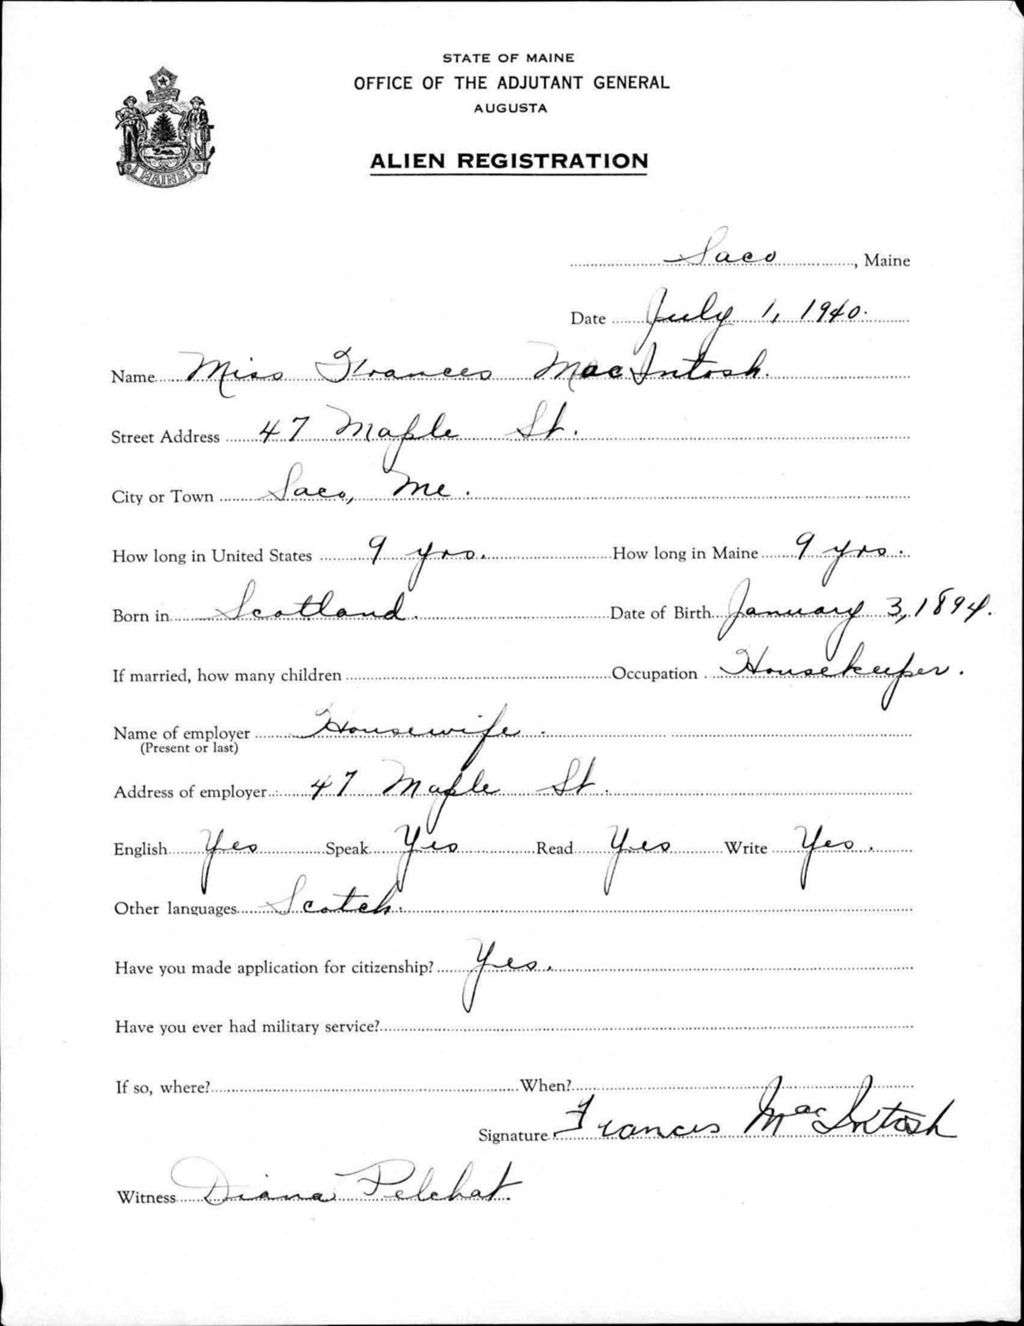 STATE OF MAINE
OFFICE OF THE ADJUTANT GENERAL
AUGUSTA
ALIEN REGISTRATION
MAINE
Saco, Maine
Date July 1, 1940.
Name Miss Frances MacIntosh.
Street Address 47 Maple St.
City or Town Saco, Me.
How long in United States 9 yrs. How long in Maine 9 yrs.
Born in Scotland. Date of Birth January 3, 1894.
If married, how many children Occupation Housekeeper.
Name of employer Housewife.
(Present or last)
Address of employer 47 Maple St.
English Yes Speak Yes Read Yes Write Yes.
Other languages Scotch.
Have you made application for citizenship? Yes.
Have you ever had military service?
If so, where? When?
Signature Frances MacIntosh
Witness Diana Pelchat.